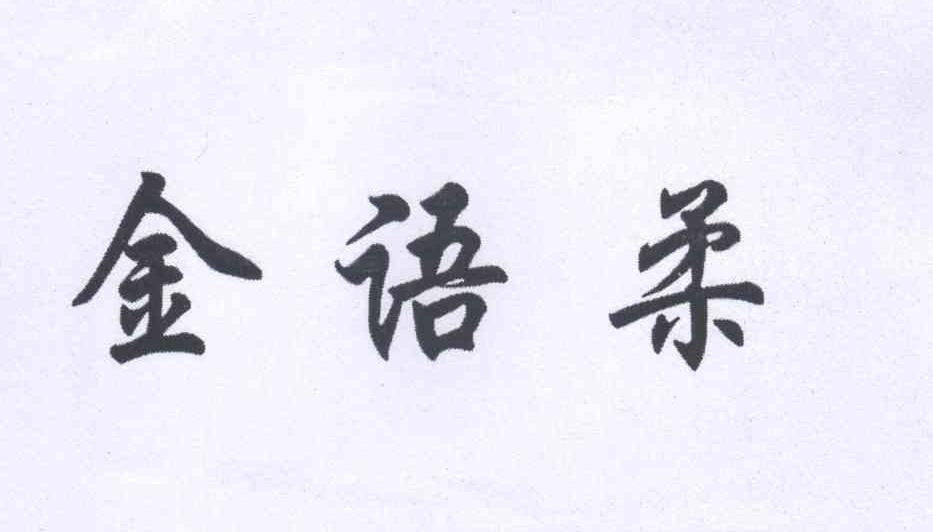 金语柔